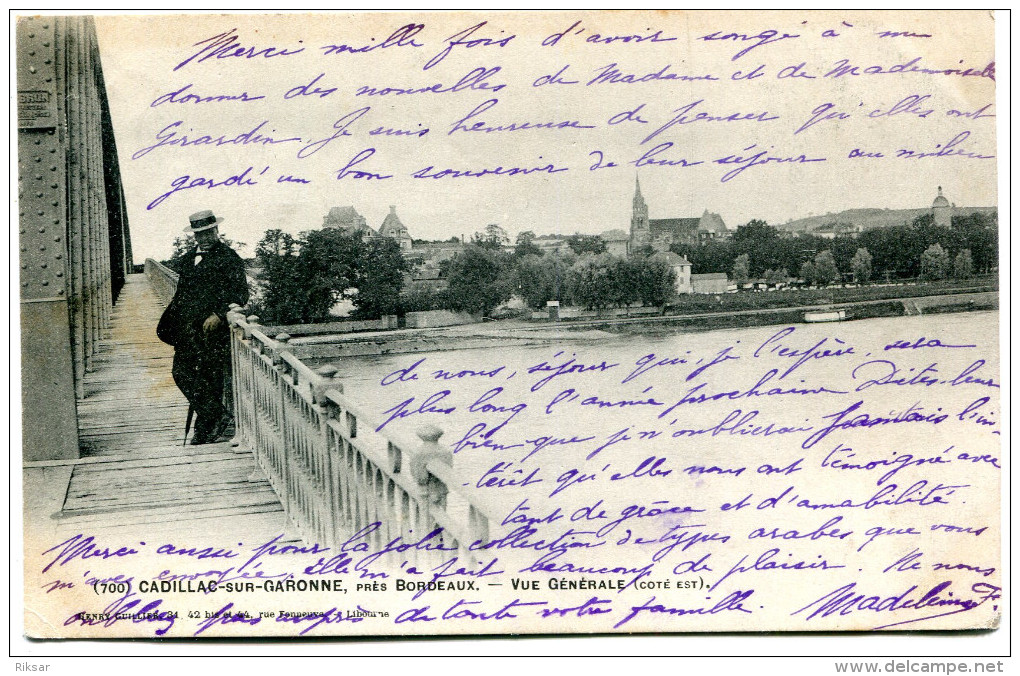 Merci mille fois d'avoir songé à me
donner des nouvelles de Madame et de Mademoiselle
Girardin. Je suis heureuse de penser qu'elles ont
gardé un bon souvenir de leur séjour au milieu
de nous, séjour qui, je l'espère, sera
plus long l'année prochaine Dites-leur
bien que je n'oublierai jamais l'in-
térêt qu'elles nous ont témoigné avec
tant de grâce et d'amabilité.
Merci aussi pour la jolie collection de types arabes que vous
m'avez envoyée, elle m'a fait beaucoup de plaisir. Ne nous
(700) CADILLAC-SUR-GARONNE, PRÈS BORDEAUX. — VUE GÉNÉRALE (CÔTÉ EST).
oubliez pas auprès de toute votre famille. Madeleine F.
HENRY GUILLIER, 42 bis et 44, rue Libourne
Riksar
www.delcampe.net